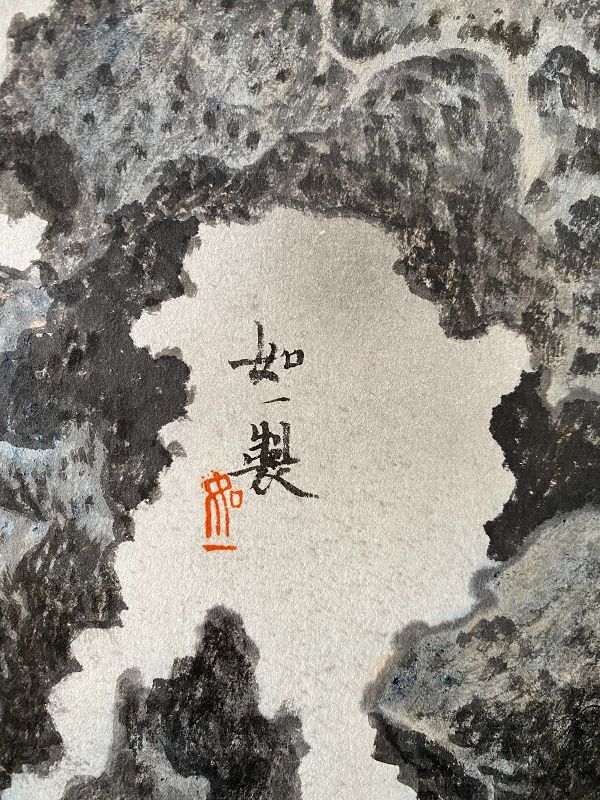 如一製
如一